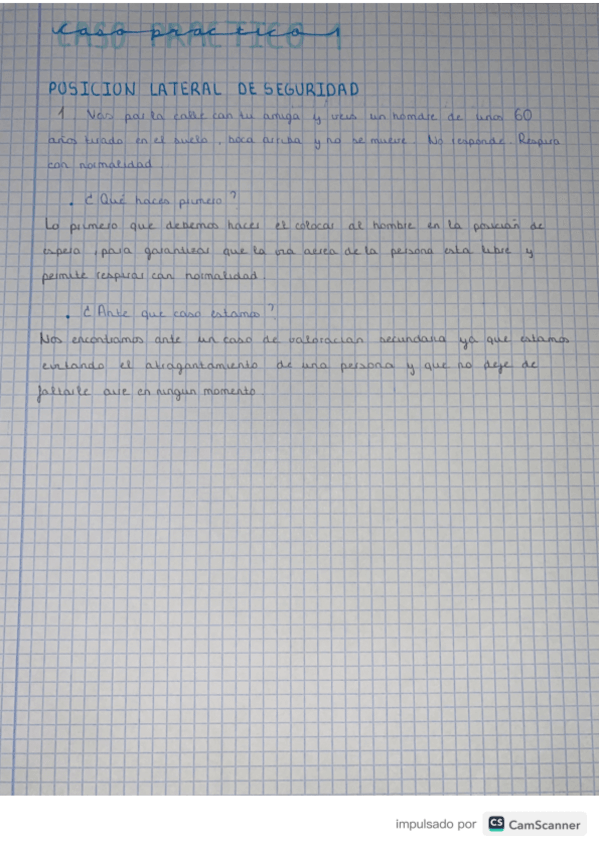 CASO PRACTICO 1
POSICION LATERAL DE SEGURIDAD
1 Vais por la calle con tu amiga y veis un hombre de unos 60
años tirado en el suelo, boca arriba y no se mueve. No responde. Respira
con normalidad.
• ¿Qué haces primero?
Lo primero que debemos hacer el colocar al hombre en la posición de
espera, para garantizar que la vía aerea de la persona esta libre y
permite respirar con normalidad.
• ¿Ante que caso estamos?
Nos encontramos ante un caso de valoración secundaria ya que estamos
evitando el atragantamiento de una persona y que no deje de
faltarle aire en ningun momento.
impulsado por CS CamScanner